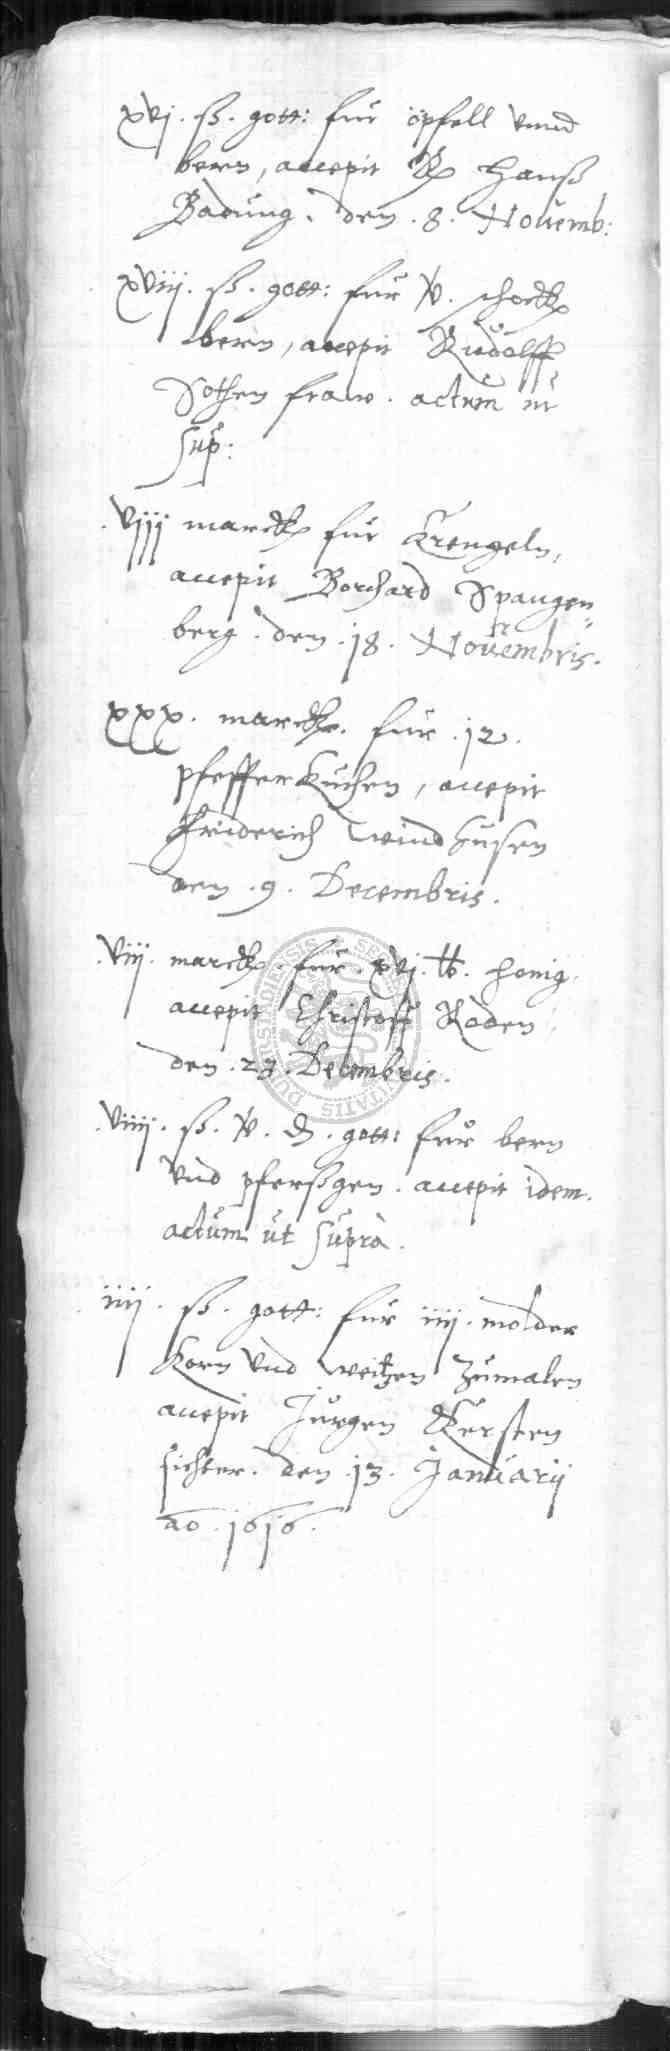 xvj. ß. gott: für öpfell vnnd
bern, accepit Hanß
Badung. den. 8. Novemb:
xviij. ß. gott: für v. schock
bern, accepit Rudolff
Sothen fraw. actum ut
sup:
viij marck für Krengeln,
accepit Borchard Spangen=
berg. den. 18. Novembris.
xxx. marck. für .12.
pfefferkuchen, accepit
Friderich Windhusen
den .9. Decembris.
viij. marck. für. xvj. lb. honig.
accepit Christoff Roden
den .23. Decembris.
viiij. ß. v. d. gott: für bern
vnd pferßgen. accepit idem.
actum ut suprà.
iiij. ß. gott: für iiij. molder
Korn vnd weitzen zumalen
accepit Jürgen Kersten
sichter. den .13. Januarij
ao. 1616.